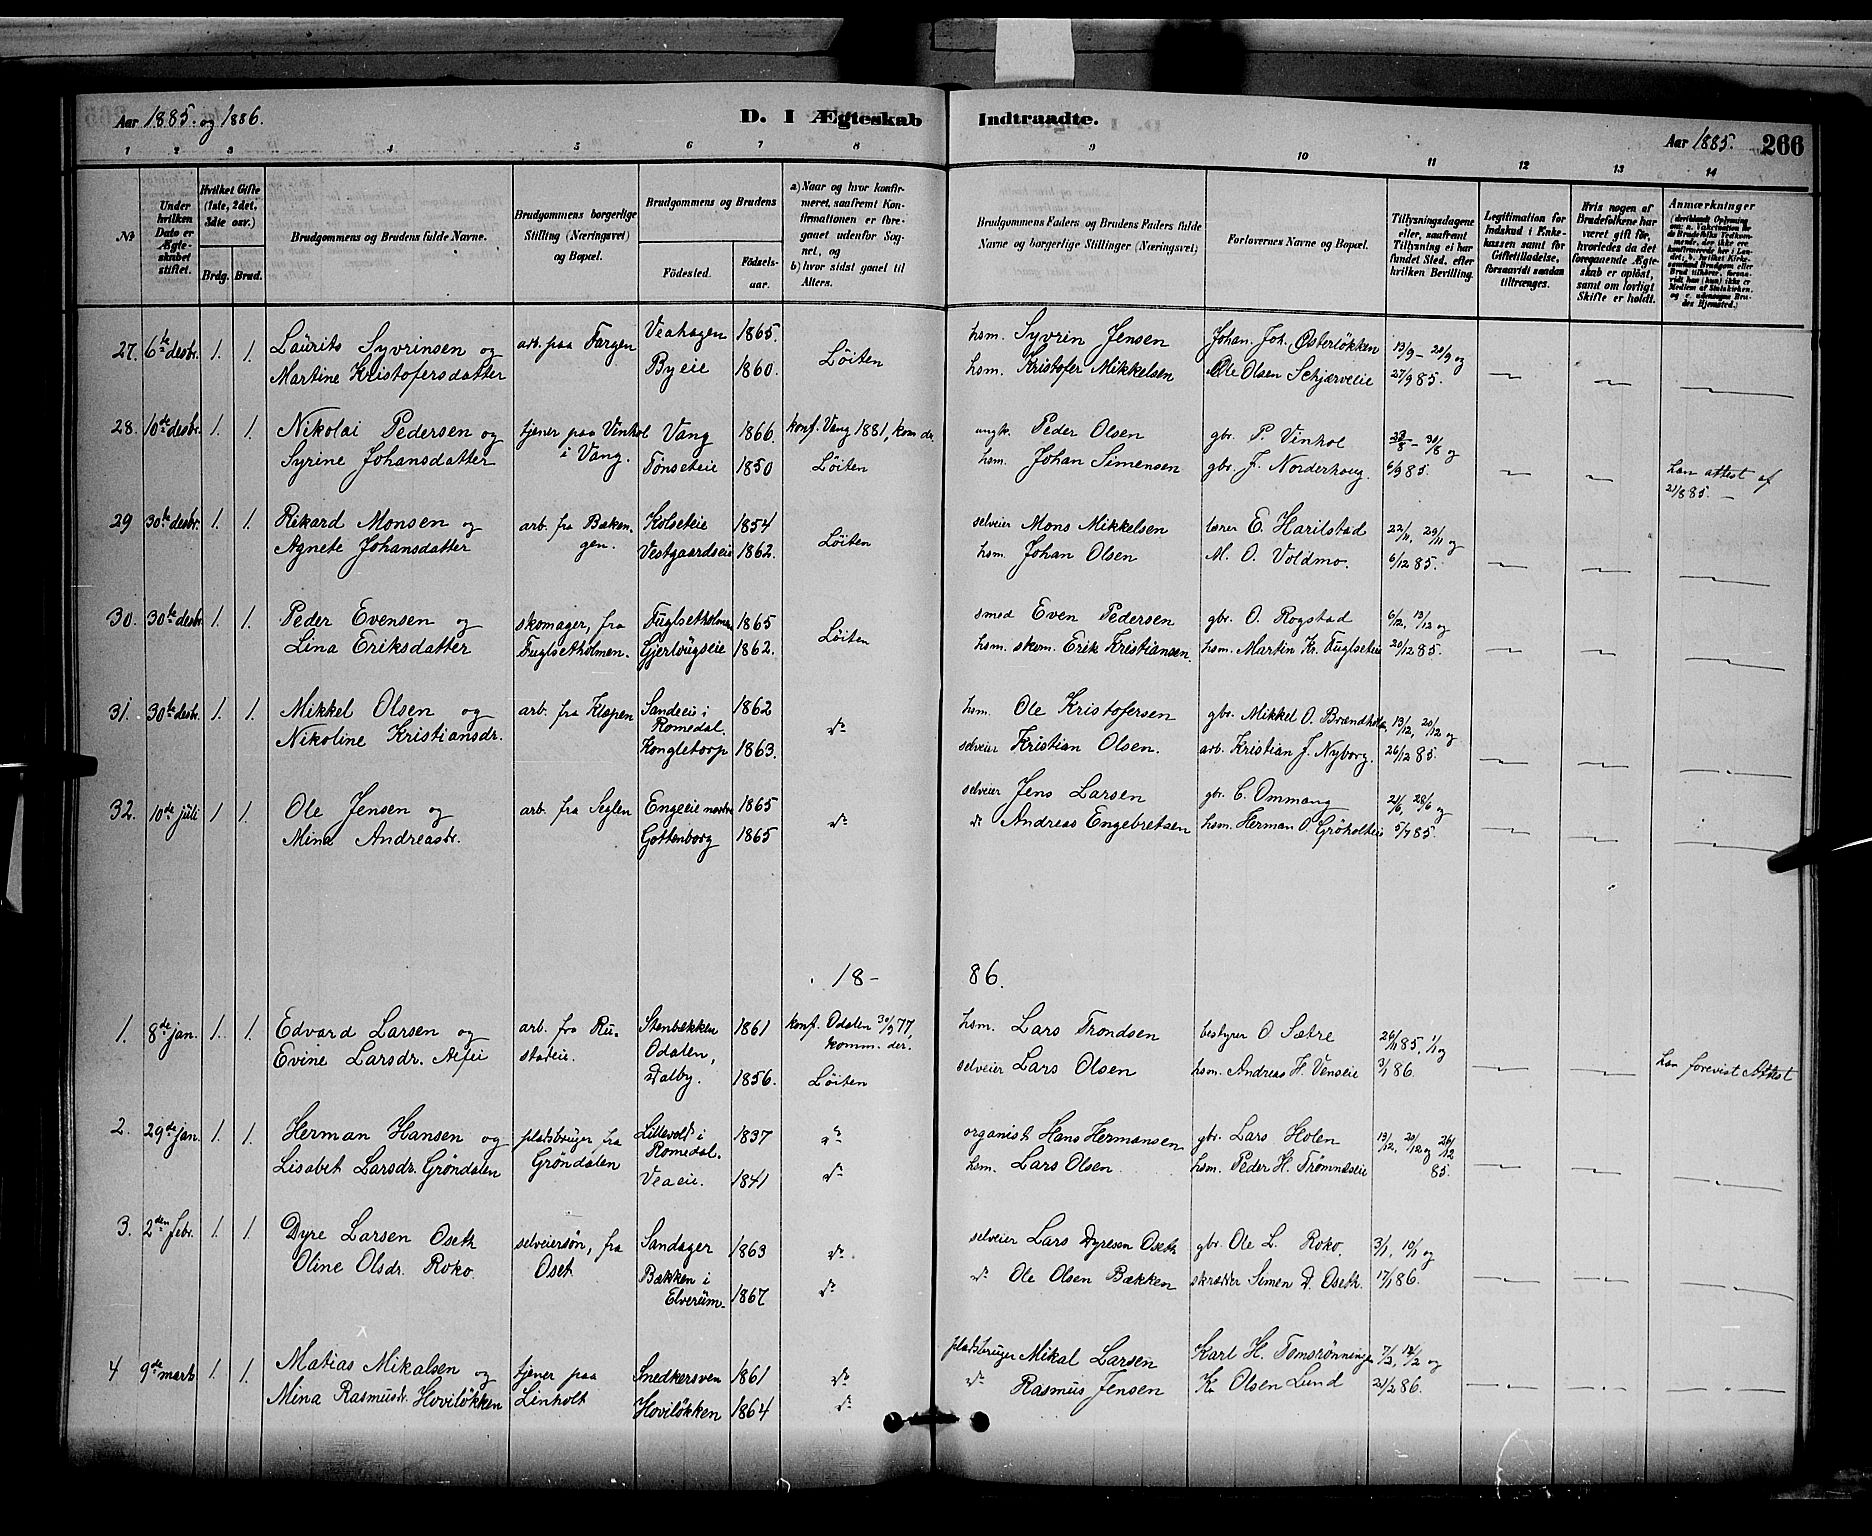 Aar 1885. og 1886. D. I Ægteskab Indtraadte. Aar 1885. 266
1 2 3 4 5 6 7 8 9 10 11 12 13 14
№
Under hvilken Dato er Ægteskabet stiftet.
Hvilket Gifte (1ste, 2det, 3die osv.)
Brdg. Brud.
Brudgommens og Brudens fulde Navne.
Brudgommens borgerlige Stilling (Næringsvei) og Bopæl.
Brudgommens og Brudens
Fødested. Fødselsaar.
a) Naar og hvor konfirmeret, saafremt Konfirmationen er foregaaet udenfor Sognet, og
b) hvor sidst gaaet til Alters.
Brudgommens Faders og Brudens Faders fulde Navne og borgerlige Stillinger (Næringsvei)
Forlovernes Navne og Bopæl.
Tillysningsdagene eller, saafremt Tillysning ei har fundet Sted, efter hvilken Bevilling.
Legitimation for Indskud i Enkekassen samt for Giftetilladelse, forsaavidt saadan tiltrænges.
Hvis nogen af Brudefolkene har været gift før, hvorledes da det foregaaende Ægteskab er opløst, samt om lovligt Skifte er holdt.
Anmærkninger
27. 6te desbr. 1. 1. Laurits Syvrinsen og arb. paa Fargen Veahagen 1865. hsm. Syvrin Jensen Johan. Joh. Østerløkken 13/9 – 20/9 og
Martine Kristofersdatter Byeie 1860. Løiten hsm. Kristofer Mikkelsen Ole Olsen Schjærveeie 27/9 85.
28. 10de desbr. 1. 1. Nikolai Pedersen og tjener paa Vinhol Vang 1866. konf. Vang 1881, kom. dr. ungk. Peder Olsen gbr. P. Vinhol 23/8 – 30/8 og
Syrine Johansdatter i Vang. Tønseteie 1850 Løiten hsm. Johan Simensen gbr. J. Norderhoug. 6/9 85. han attest af
21/8 85.
29 30te desbr. 1. 1. Rikard Monsen og arb. fra Bakengen. Kolseteie 1854 selveier Mons Mikkelsen lærer E. Harilstad 22/11, 29/11 og
Agnete Johansdatter Vestgaardseie 1862. Løiten hsm. Johan Olsen M. O. Voldmo. 6/12 85.
30. 30te desbr. 1. 1. Peder Evensen og skomager, fra Fuglsetholmen 1865 smed Even Pedersen gbr. O. Rogstad 6/12, 13/12 og
Lina Eriksdatter Fuglsetholmen. Gjerlougseie 1862. Løiten hsm. skom. Erik Kristiansen. hsm. Martin Kr. Fuglseteie 20/12 85.
31. 30te desbr. 1. 1. Mikkel Olsen og arb. fra Klæpen Sandeeie i Romedal. 1862 hsm. Ole Kristofersen gbr. Mikkel O. Brændholen 13/12, 20/12 og
Nikoline Kristiansdr. Kongletorp 1863. do selveier Kristian Olsen. arb. Kristian J. Nyborg. 26/12 85.
32. 10de juli 1 1. Ole Jensen og arb. fra Seglen Engeeie nordre 1865 selveier Jens Larsen gbr. C. Ommang 21/6, 28/6 og
Mina Andreasdr. Gottenborg 1865 do do Andreas Engebretsen hsm. Herman O. Grøholteie 5/7 85.
18– 86.
1. 8de jan. 1. 1. Edvard Larsen og arb. fra Rustadeie. Stenbekken 1861 konf. Odalen 30/9 77. hsm. Lars Trondsen bestyrer O Sætre 26/11 85, 1/1 og
Evine Larsdr. Odalen, komm. der.
Dalby. 1856. Løiten selveier Lars Olsen hsm. Andreas H. Venseie 3/1 86. han forevist Attest
2. 29de jan. 1. 1. Herman Hansen og pladsbruger fra Lillevold i Romedal. 1837 do organist Hans Hermansen gbr. Lars Holen 13/12, 20/12 og 26/12
Lisabet Larsdr. Grøndalen Grøndalen Veaeie. 1841 do hsm. Lars Olsen hsm. Peder H. Trømnæseie 85.
3. 2den febr. 1. 1. Dyre Larsen Oseth selveiersøn, fra Sandager 1863 do selveier Lars Dyresen Oseth gbr. Ole L. Roko. 3/1, 10/1 og
Oline Olsdr. Roko Oset Bækken i Elverum. 1867 do do Ole Olsen Bækken skrædder Simen D. Oseth. 17/1 86.
4 9de marts 1. 1. Matias Mikalsen og tjener paa Snedkersven 1861 do pladsbruger Mikal Larsen Karl H. Tomsrønningen 7/2, 14/2 og
Mina Rasmusdr. Hoviløkken Linholt Hoviløkken 1864 do do Rasmus Jensen Kr. Olsen Lund 21/2 86.